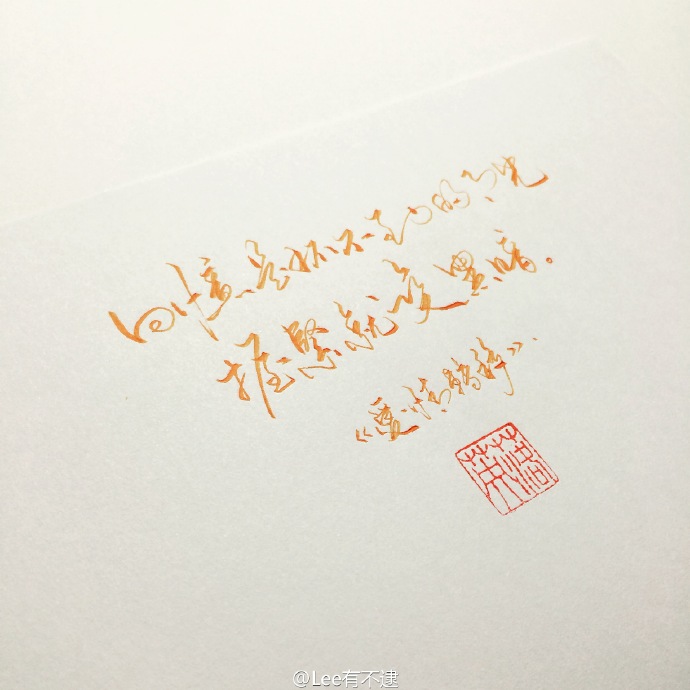 回憶是抓不到的月光
握緊就變黑暗。
《愛情轉移》
@Lee有不逮